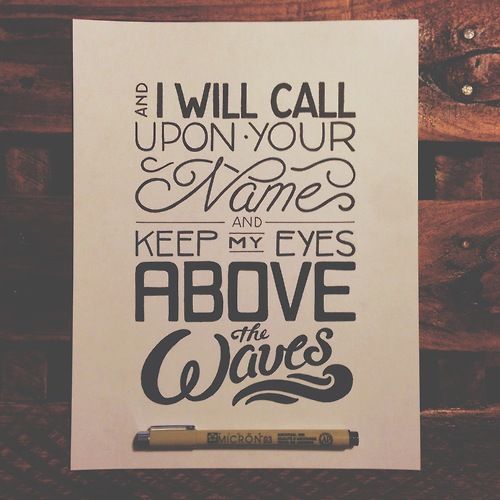 AND I WILL CALL
UPON · YOUR
Name
AND
KEEP MY EYES
ABOVE
the
Waves
MICRON 03